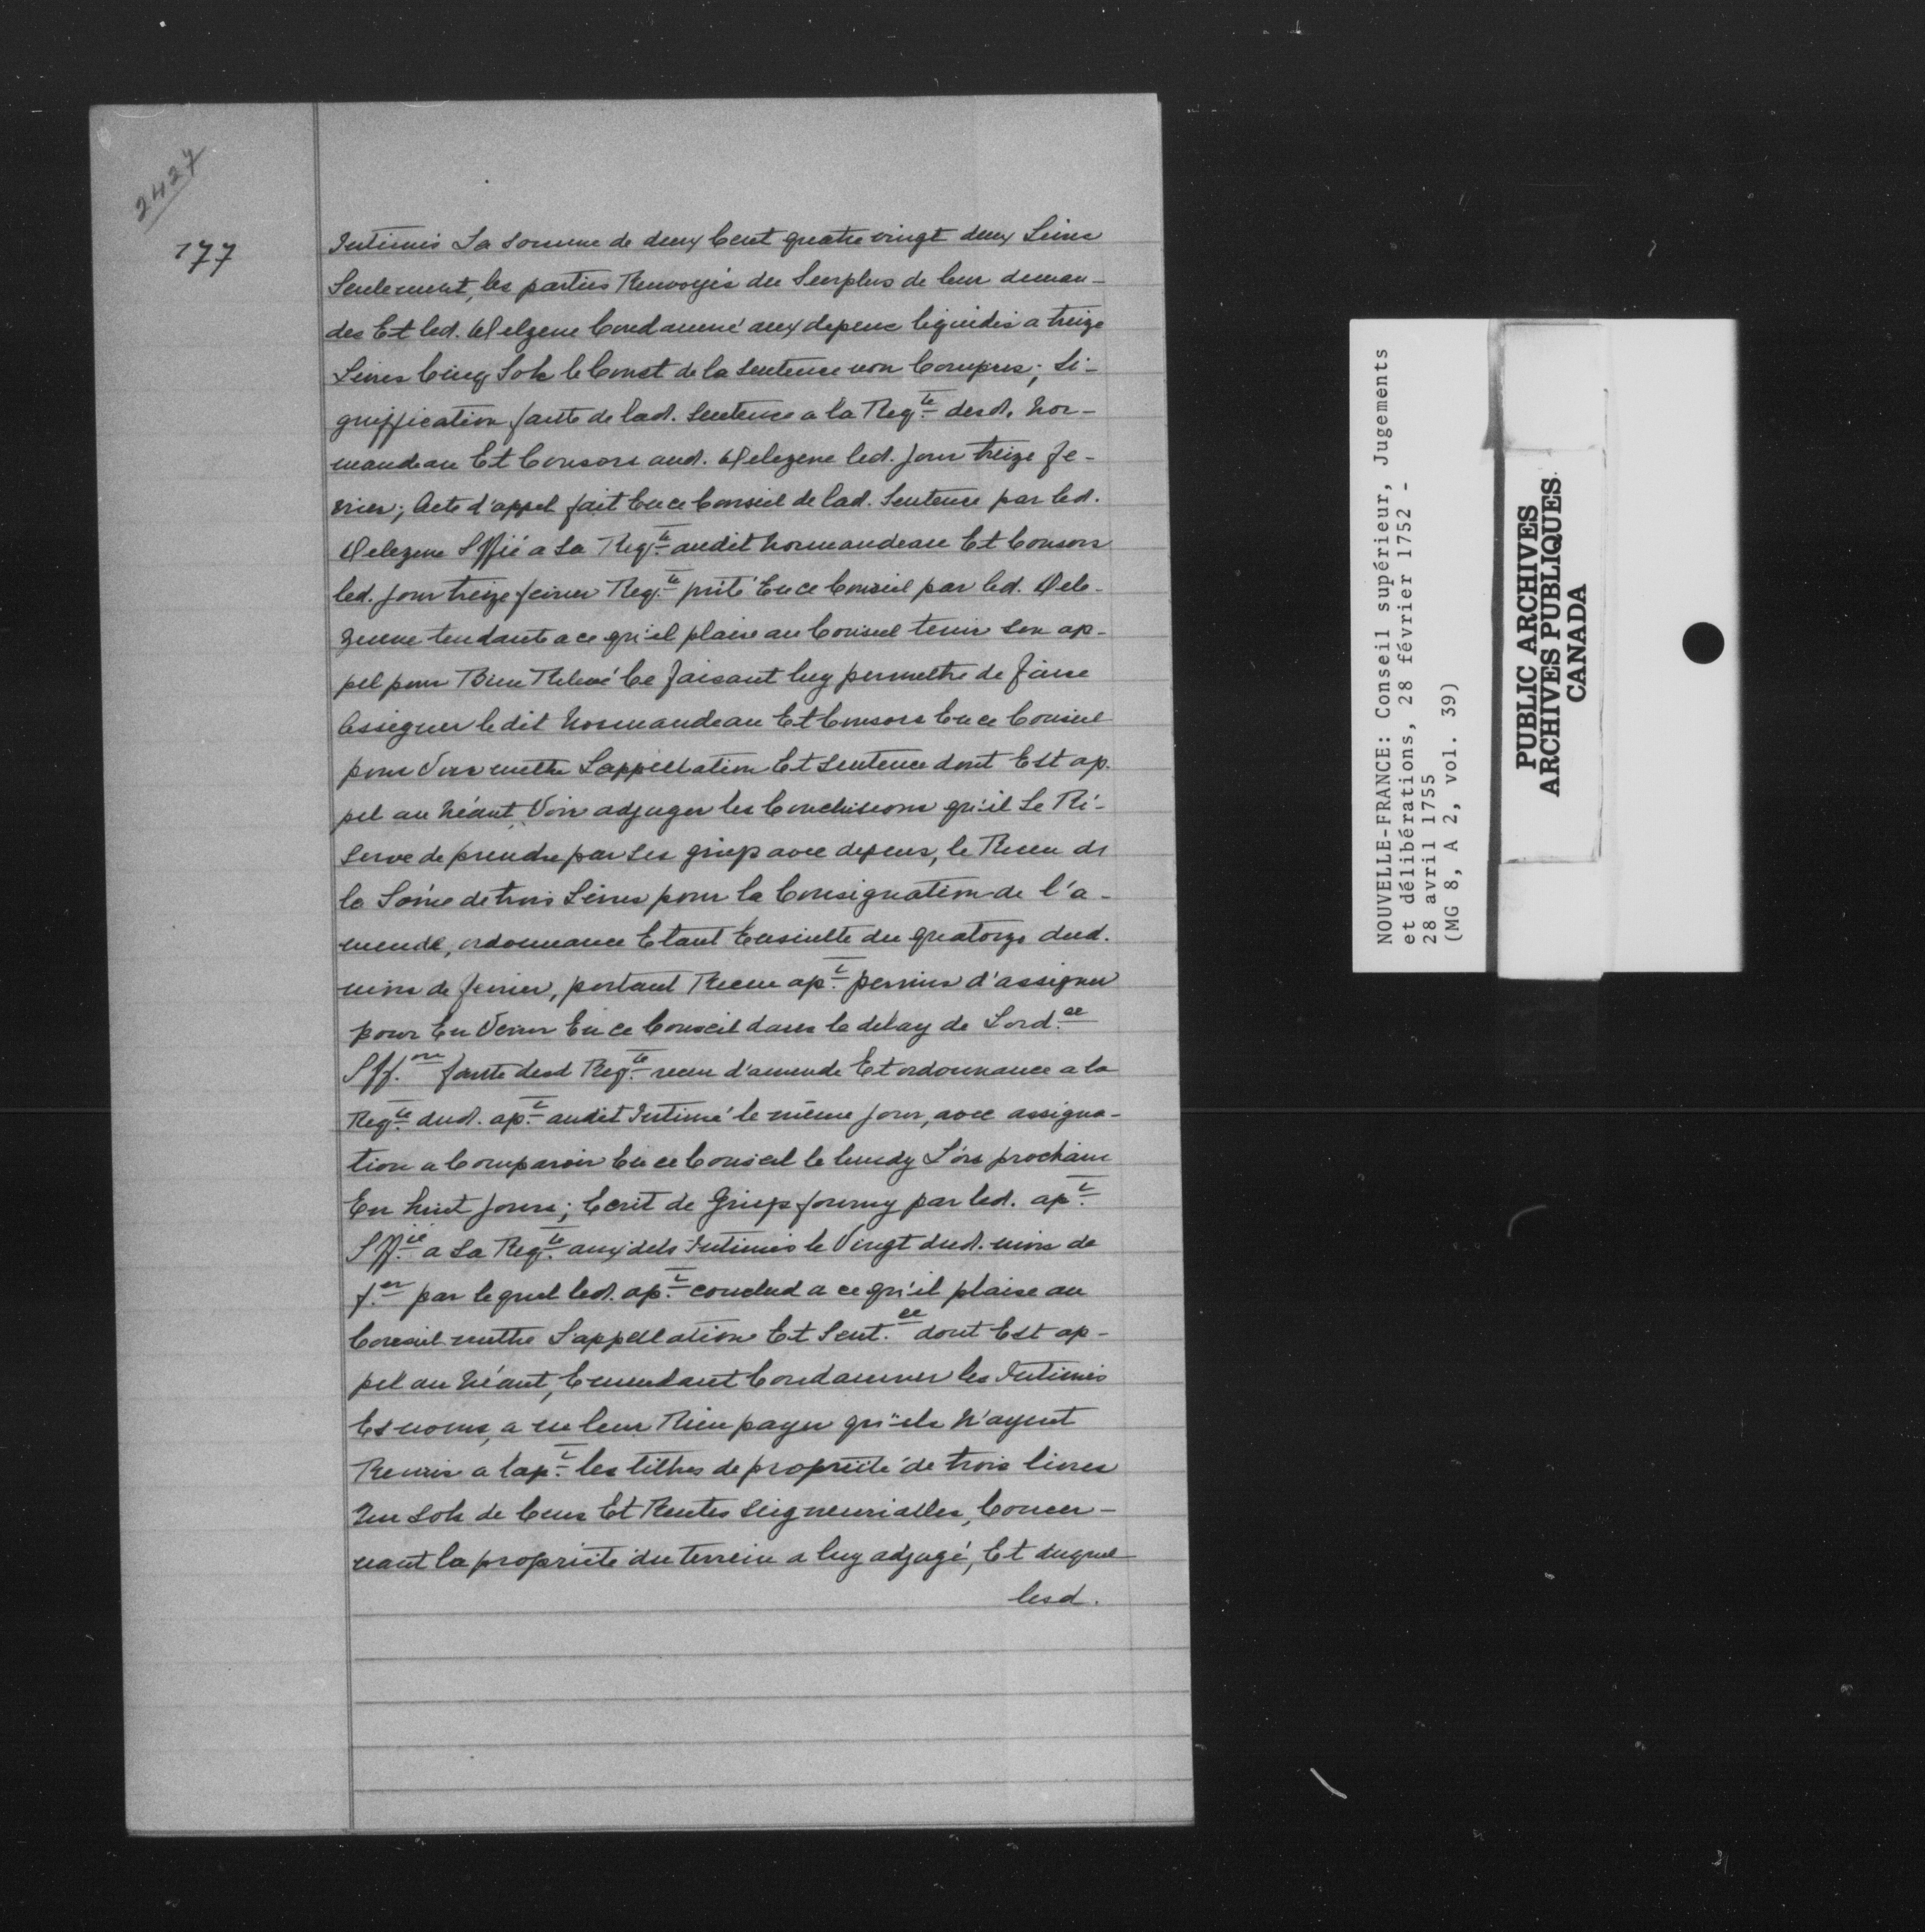 2427
177
Intimés La Somme de deux Cent quatre vingt deux Livres
Seulement, les parties Renvoyés du Surplus de leur deman-
des Et led. Delzene Condamné aux depens liquidés a treize
Livres Cinq Sols le Coust de la Sentence non Compris; Si-
gniffication faite de lad. Sentence a la Reqte. desd. Nor-
mandeau Et Consors aud. Delezene led. Jour treize Fe-
vrier; Acte d'appel fait En ce Conseil de lad. Sentence par led.
Delezene Sffié a Sa Reqte. audit Normandeau Et Consors
led. Jour treize fevrier Reqte. prité En ce Conseil par led. Dele-
zenne tendante a ce qu'il plaise au Conseil tenir Son ap-
pel pour Bien Relevé Ce faisant luy permettre de faire
Assigner le dit Normandeau Et Consors En ce Conseil
pour Voir mettre L'appellation Et Sentence dont Est ap-
pel au Néant, Voir adjuger les Conclusions qu'il Se Ré-
serve de prendre par Ses griefs avec depens, le Receu de
la Some de trois Livres pour la Consignation de l'a-
mende, ordonnance Etant Ensuitte du quatorze dud.
mois de fevrier, portant Receu apt. permis d'assigner
pour En Venir En ce Conseil dans le delay de Lord.ce
Sff.on faite desd Reqte. receu d'amende Et ordonnance a la
Reqte. dud. apt. audit Intimé le même Jour, avec assigna-
tion a Comparoir En ce Conseil le lundy Lors prochain
En huit Jours; Ecrit de Griefs fourny par led. apt.
Sff.ié a Sa Reqte. auxdits Intimés le Vingt dud. mois de
f.er par lequel led. apt. conclud a ce qu'il plaise au
Conseil mettre L'appellation Et Sent.ce dont Est ap-
pel au Néant, Emendant Condamner les Intimés
Es noms, a ne leur Rien payer qu'ils N'ayent
Remis a lapt. les tiltres de proprieté de trois livres
Un Sols de Cens Et Rentes Seigneurialles, Concer-
nant la proprieté du terrein a luy adjugé, Et duquel
lesd.
NOUVELLE-FRANCE: Conseil supérieur, Jugements
et délibérations, 28 février 1752 -
28 avril 1755
(MG 8, A 2, vol. 39)
PUBLIC ARCHIVES
ARCHIVES PUBLIQUES
CANADA